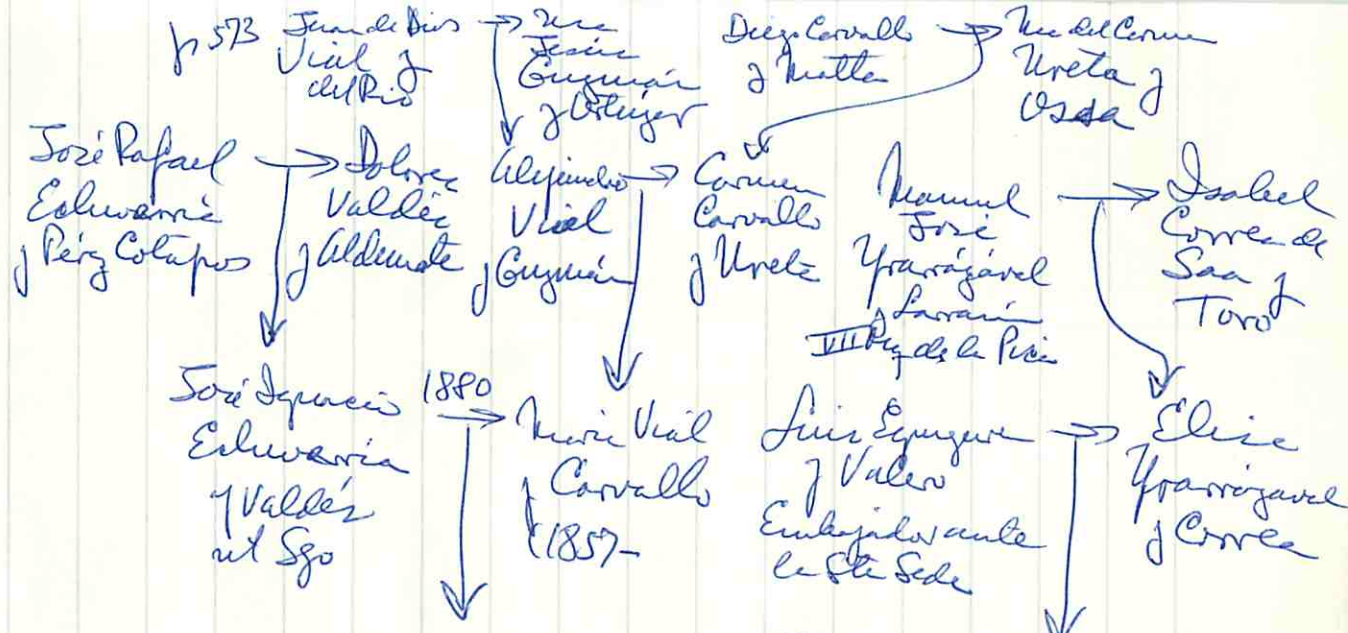 p 573
Juan de Dios
Vial y
del Rio
Jesús
Guzmán
y
Diego Carvallo
y Matta
Ma del Carmen
Ureta y
Ossa
José Rafael
Echevarría
y Pérez Cotapos
Dolores
Valdés
y Aldunate
Alejandro
Vial
y Guzmán
Carmen
Carvallo
y Ureta
Manuel
José
Yrarrázaval
y Larraín
VII Mrq de la Pica
Isabel
Correa de
Saa y
Toro
José Ignacio
Echevarria
y Valdés
nt Sgo
1880
Maria Vial
y Carvallo
(1857-
Luis
y Valero
Embajador ante
la Sta Sede
Elisa
Yrarrázaval
y Correa